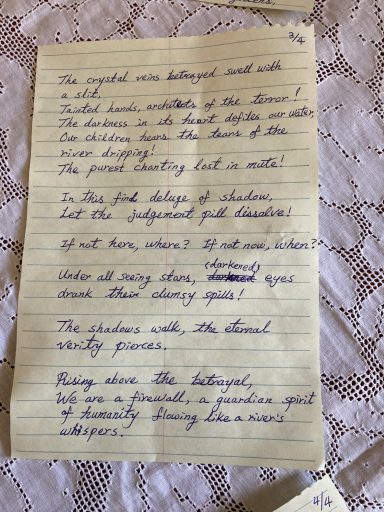 3/4
The crystal veins betrayed swell with
a slit.
Tainted hands, architects of the terror!
The darkness in its heart defiles our water,
Our children hears the tears of the
river dripping!
The purest chanting lost in mute!
In this final deluge of shadow,
Let the judgement pill dissolve!
If not here, where? If not now, when?
(darkened)
Under all seeing stars, eyes
drank their clumsy spills!
The shadows walk, the eternal
verity pierces.
Rising above the betrayal,
We are a firewall, a guardian spirit
of humanity flowing like a river's
whispers.
4/4